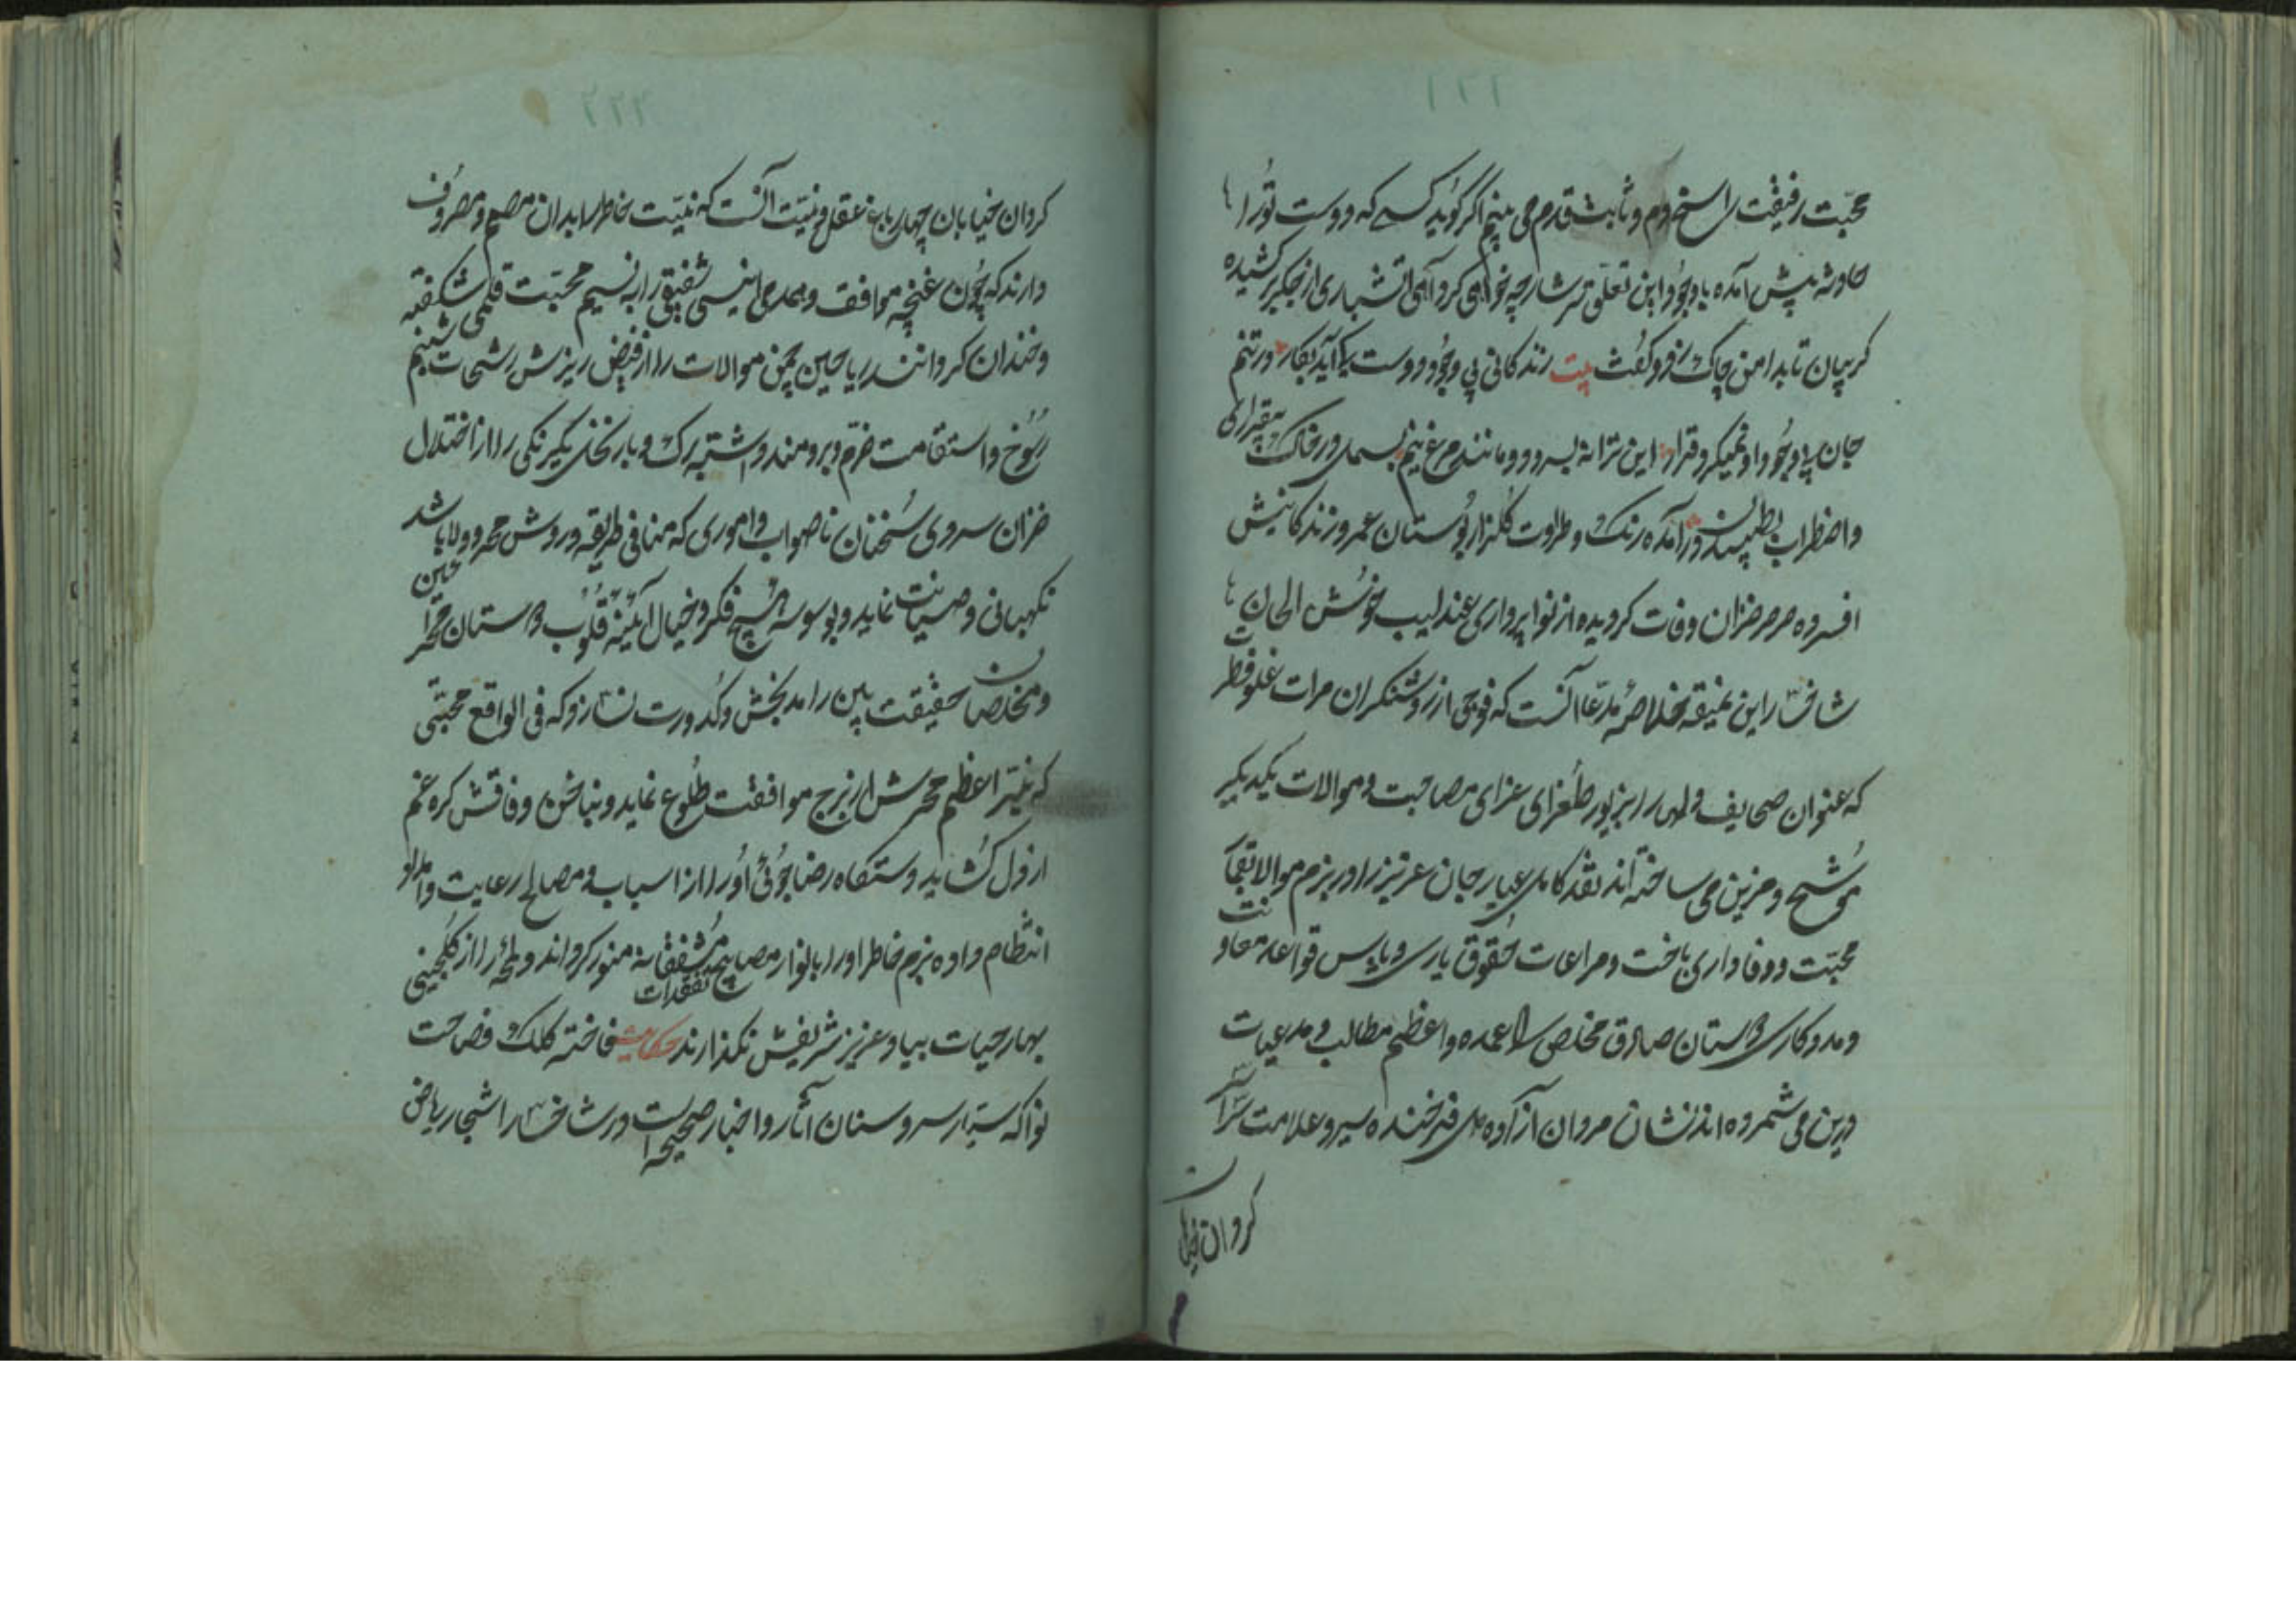 ۲۲۱
محبّت رفیقت راسخ دم و ثابت قدم می بینم اگر گوید کسے که دوست تورا
حادثه پیش آمده باوجود این تعلق سرشار چه خواهی کرد آهی آتشباری از جگر برکشیده
گریبان تا بدامن چاک زد و گفت بیت زندگانی بی وجود دوست کی آید بکار در تنم
جان بی وجود او نمیگیرد قرار این ترانه بسرود و مانند مرغ نیم بسمل در خاک بیقراری
واضطراب بطپیدن درآمده رنگ و طراوت گلزار بوستان عمر و زندگانیش
افسرده صرصر خزان وفات گردیده از نواپردازی عندلیب خوش الحان
شاخسار این نمیقه خلاصهٔ مدّعا آنست که فوجی از روشنگران مرات فطرت
که عنوان صحایف دلها را بزیور طغرای غرای مصاحبت و موالات یکدیگر
موشح و مزین می ساخته اند نقد کامل عیار جان عزیز را در بزم موالات
محبّت و وفاداری باخت و مراعات حقوق یاری و پاس قواعد معاونت
و مددکاری دوستان صادق مخلص را عمده و اعظم مطالب و مدعیات
درین می شمرده اند نشان مردان آزاده دل فرخنده سیر و علامت
گردان خیابان
۲۲۲
گردان خیابان چهارباغ عقل و نیت آنست که نیّت خاطر را بدان مصمم و مصروف
دارند که چون غنچه موافقت و همدمی انیسی شفیق را به نسیم محبّت قلبی شکفته
و خندان گردانند ریاحین چمن موالات را از فیض ریزش رشحات شبنم
رسوخ و استقامت خرّم و برومند داشته برگ و بار نخل یکرنگی را از اختلال
خزان سردی سخنان ناصواب و اموری که منافی طریقه و روش مهر و ولا باشد
نگهبانی و صیانت نماید و بوسوسهٔ هیچ فکر و خیال آئینهٔ قلوب دوستان
و مخلصان حقیقت بین را مد بخش و کدورت نسازد که فی الواقع محبّتی
که نیّر اعظم مهرش از برج موافقت طلوع نماید و بناخن وفاقش گره غم
از دل گشاید دستگاه رضاجوئی او را از اسباب و مصالح رعایت و امداد
انتظام داده بزم خاطر او را بانوار مصابیح تفقدات مشفقانه منور گرداند و لمحهٔ را از گلچینی
بهار حیات بیاد عزیز شریفش نگذارند حکایت فاخته کلک فصاحت
نوا که سیّار سروستان آثار و اخبار صحیحه است در شاخسار اشجار ریاض